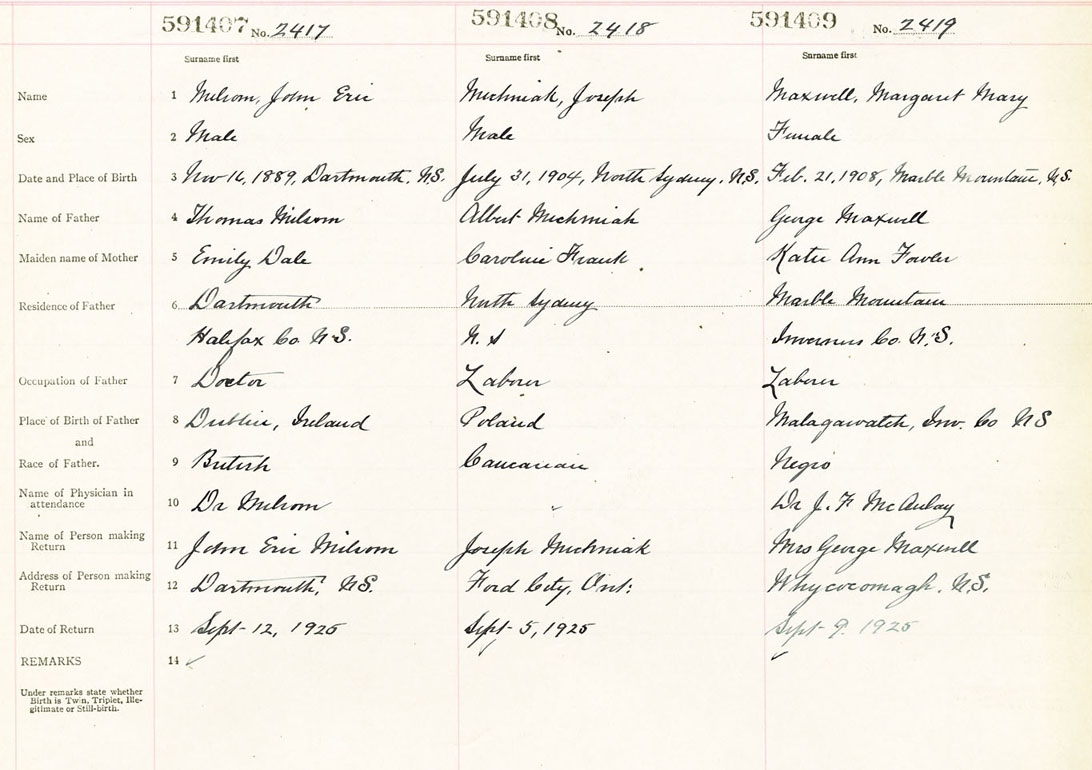 591407 No. 2417 591408 No. 2418 591409 No. 2419
Surname first Surname first Surname first
Name 1 Milsom, John Eric Michniak, Joseph Maxwell, Margaret Mary
Sex 2 Male Male Female
Date and Place of Birth 3 Nov 16, 1889, Dartmouth, N.S. July 31, 1904, North Sydney, N.S. Feb. 21, 1908, Marble Mountain, N.S.
Name of Father 4 Thomas Milsom Albert Michniak George Maxwell
Maiden name of Mother 5 Emily Dale Caroline Frank Katie Ann Fowler
Residence of Father 6 Dartmouth North Sydney Marble Mountain
Halifax Co. N.S. N.S Inverness Co. N.S.
Occupation of Father 7 Doctor Laborer Laborer
Place of Birth of Father 8 Dublin, Ireland Poland Malagawatch, Inv. Co N S
and
Race of Father. 9 British Caucasian Negro
Name of Physician in
attendance 10 Dr Milsom " Dr J. F McAulay
Name of Person making
Return 11 John Eric Milsom Joseph Michniak Mrs George Maxwell
Address of Person making
Return 12 Dartmouth, N.S. Ford City, Ont: Whycocomagh, N.S.
Date of Return 13 Sept-12, 1925 Sept-5, 1925 Sept-9. 1925
REMARKS 14 ✓ ✓
Under remarks state whether
Birth is Twin, Triplet, Ille-
gitimate or Still-birth.